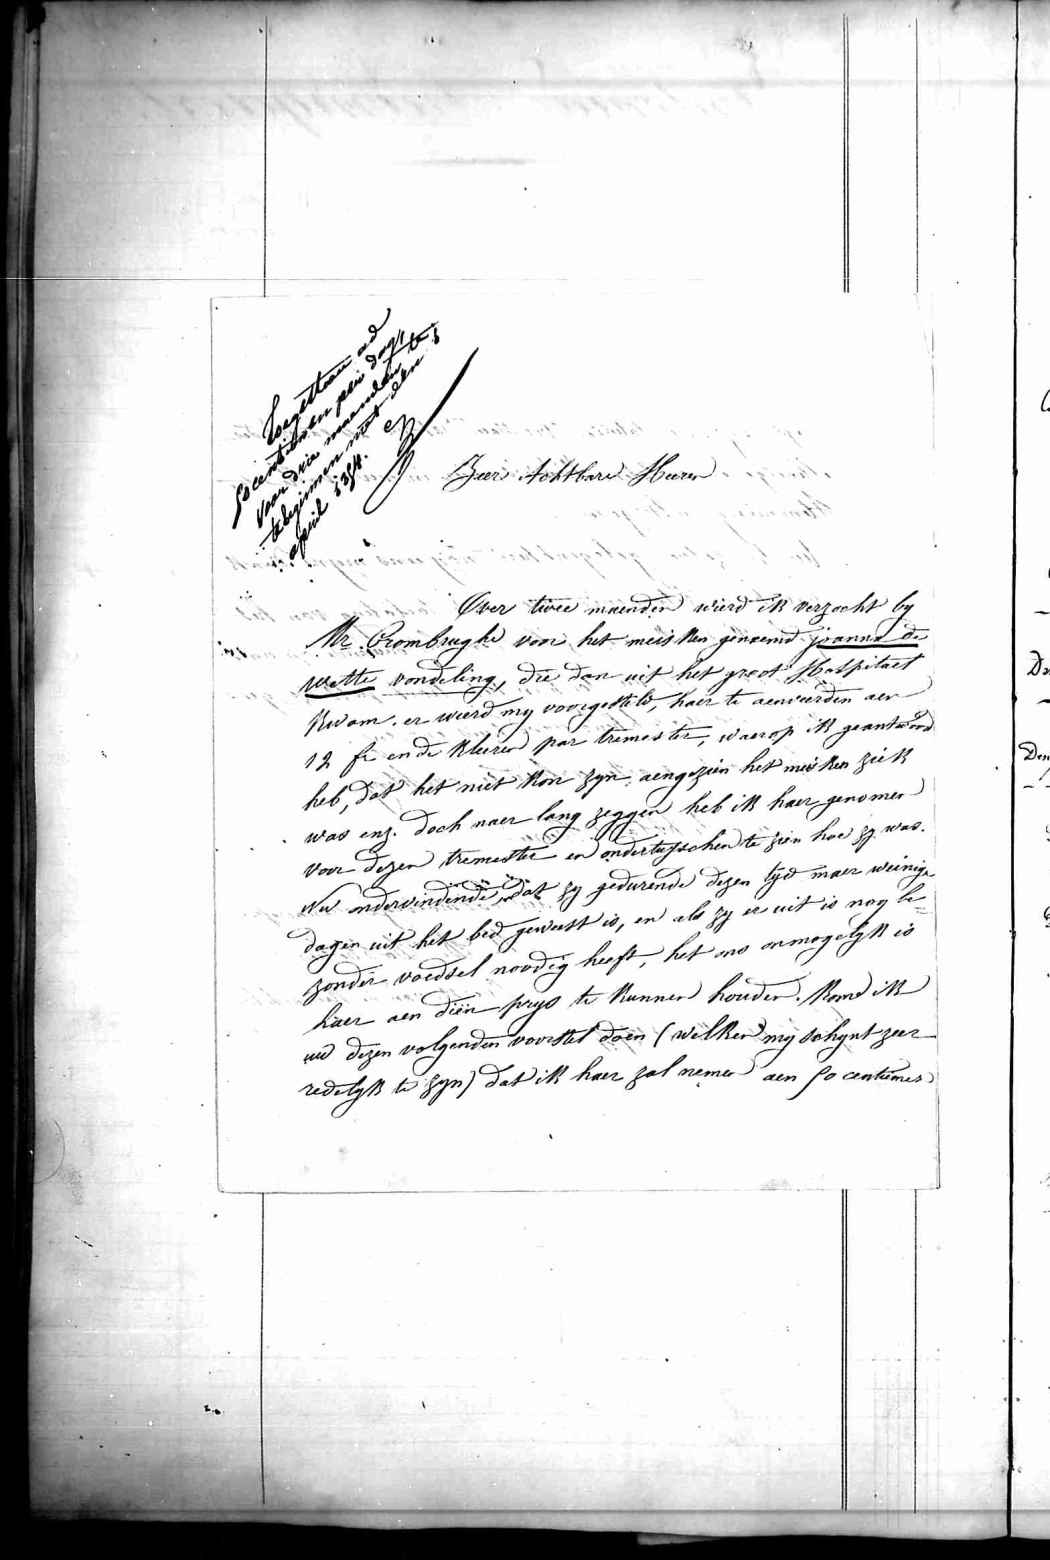 Toegestaan ad
50 centimen per dag
voor drie maenden te
te beginnen met den 1
april 1854.
Zeer Achtbare Heeren
Over twee maenden wierd ik verzocht by
Mr. Crombrughe voor het meisken genaemd joanna de
Wette vondeling, die dan uit het groot Hospitael
kwam. er wierd my voorgesteld, haer te aenveerden aen
12 fr ende kleeren par tremester, waerop ik geantwoord
heb, dat het niet kon zyn aengezien het meisken ziek
was enz. doch naer lang zeggen heb ik haer genomen
voor dezen tremester en ondertusschen te zien hoe zy was.
Nu ondervindende, dat zy gedurende dezen tyd maer weinige
dagen uit het bed geweest is, en als zy er uit is nog be=
zonder voedsel noodig heeft, het ons onmogelyk is
haer aen dien prys te kunnen houden. Kome ik
uw dezen volgenden voorstel doen (welken my schynt zeer
redelyk te zyn) dat ik haer zal nemen aen 50 centimes